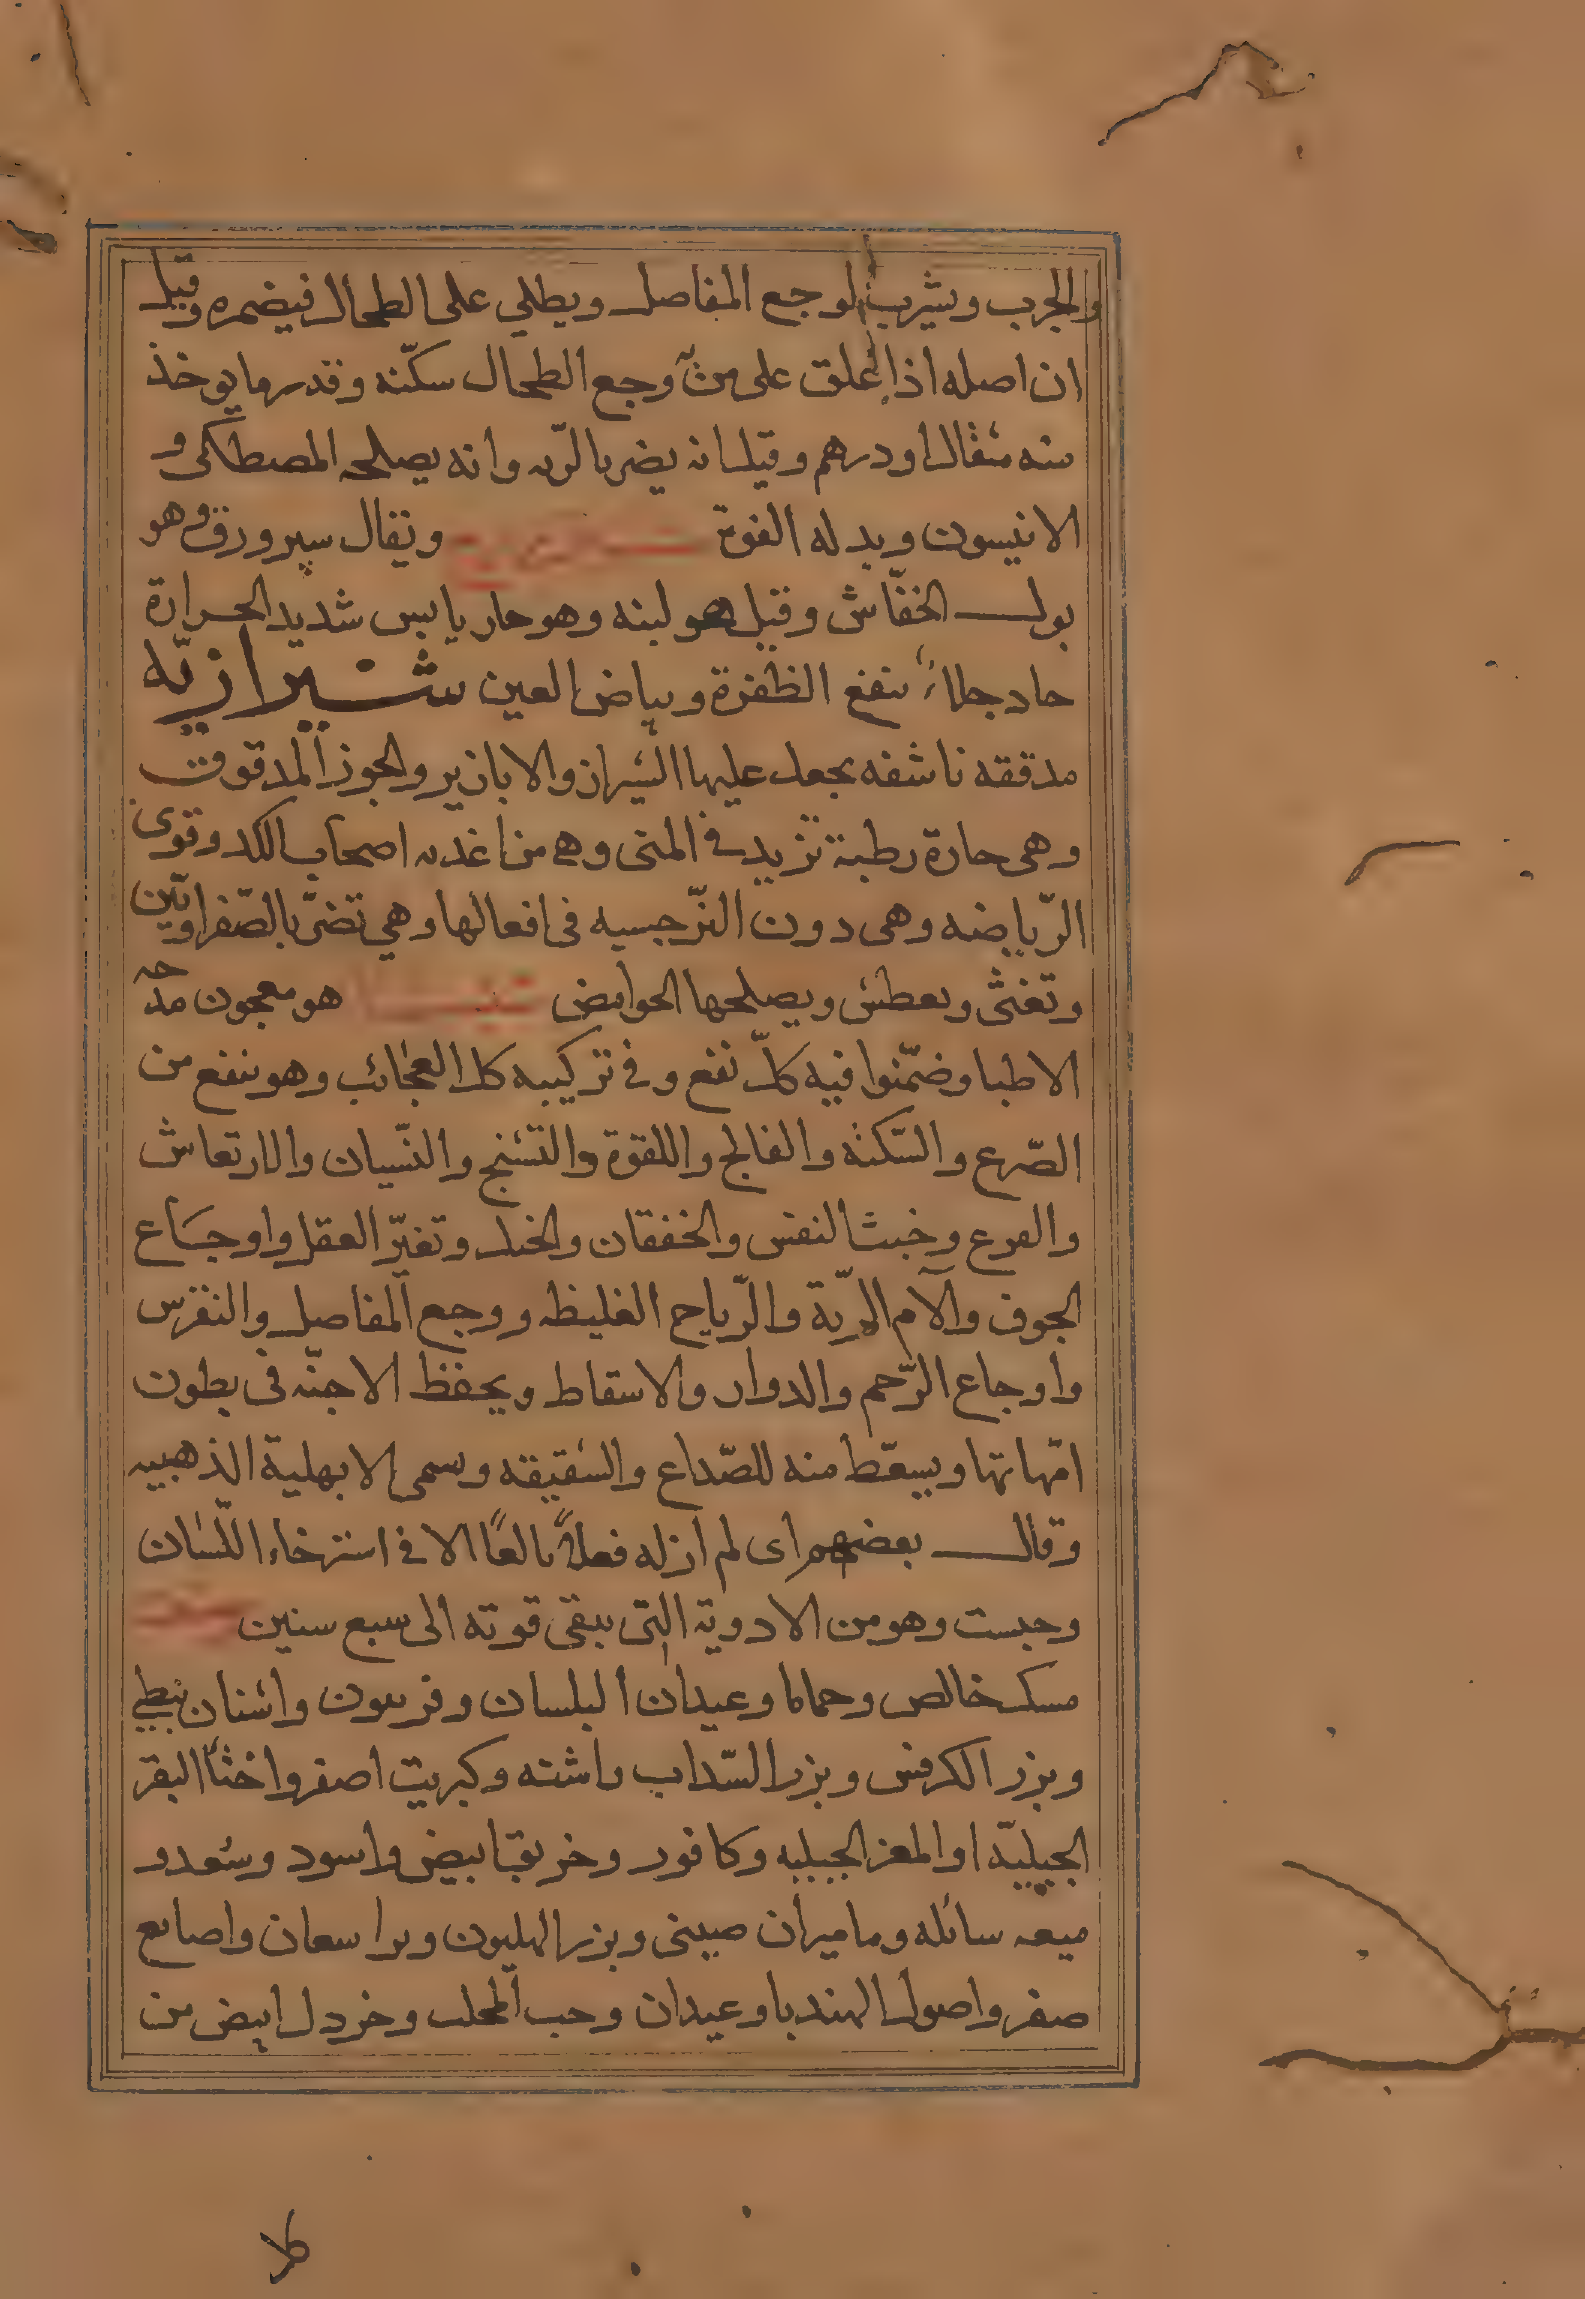 والجرب ويشرب لوجع المفاصل ويطلي على الطحال فيضمره وقيل
ان اصله اذا علق على من به وجع الطحال سكّنه وقدر ما يوخذ
منه مثقال او درهم وقيل انه يضر بالريه وانه يصلحه المصطكى و
الانيسون وبدله الفوة ويقال سيرورق وهو
بول الخفّاش وقيل هو لبنه وهو حار يابس شديد الحرارة
حاد جلاء ينفع الظفرة وبياض العين شيرازيّه
مدققه ناشفه يجعل عليها الشيراز والابازير والجوز المدقوق
وهى حارة رطبة تزيد في المنى وهي من اغذيه اصحاب الكد وقوى
الرّياضه وهى دون النّرجسيه فى افعالها وهي تضرّ بالصّفراويّين
وتغثى وتعطش ويصلحها الحوامض هو معجون مدحه
الاطبا وضمّنوا فيه كلّ نفع وفي تركيبه كل العجائب وهو ينفع من
الصّرع والسّكته والفالج واللقوة والتشنج والنّسيان والارتعاش
والفزع وخبث النفس والخفقان والخبل وتغيّر العقل واوجاع
الجوف والآم الريّة والرّياح الغليظه ووجع المفاصل والنقرس
واوجاع الرّحم والدوار والاسقاط ويحفظ الاجنّه فى بطون
امّهاتها ويسعّط منه للصّداع والشقيقه وسمى الابهلية الذهبيه
وقال بعضهم اى لم ار له فعلاً بالغًا الا في استرخاء اللّسان
وحبست وهو من الادوية التى يبقى قوته الى سبع سنين
مسك خالص وحماما وعيدان البلسان وفربيون واشنان نبطي
وبزر الكرفس وبزر السّداب وكبريت اصفر واخثا البقر
الجبليّه او المعز الجبليه وكافور وخربق ابيض واسود وسعد و
ميعه سائله وماميران صينى وبزر الهليون واصابع
صفر واصول الهندبا وعيدان وحب المحلب وخردل ابيض من